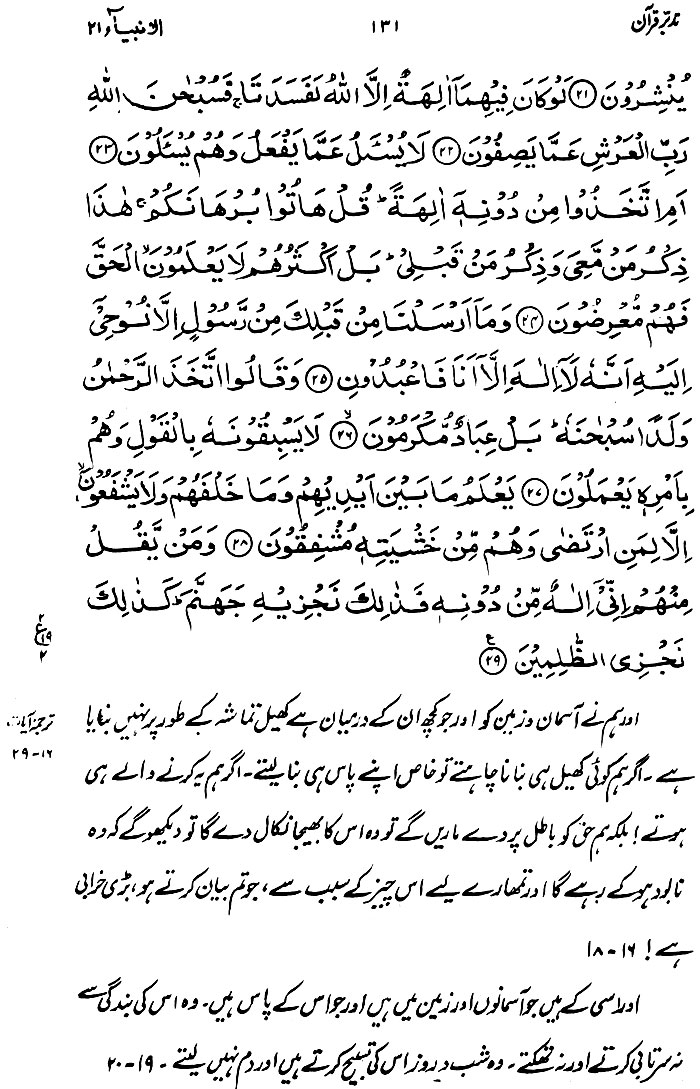 تدبرِ قرآن ۱۳۱ الانبیآء ۲۱
يُنْشِرُوْنَ ۲۱ لَوْ كَانَ فِيْهِمَآ اٰلِهَةٌ اِلَّا اللّٰهُ لَفَسَدَتَا ۚ فَسُبْحٰنَ اللّٰهِ
رَبِّ الْعَرْشِ عَمَّا يَصِفُوْنَ ۲۲ لَا يُسْـَٔلُ عَمَّا يَفْعَلُ وَهُمْ يُسْـَٔلُوْنَ ۲۳
اَمِ اتَّخَذُوْا مِنْ دُوْنِهٖٓ اٰلِهَةً ؕ قُلْ هَاتُوْا بُرْهَانَكُمْ ۚ هٰذَا
ذِكْرُ مَنْ مَّعِیَ وَذِكْرُ مَنْ قَبْلِیْ ؕ بَلْ اَكْثَرُهُمْ لَا يَعْلَمُوْنَ ۙ الْحَقَّ
فَهُمْ مُّعْرِضُوْنَ ۲۴ وَمَآ اَرْسَلْنَا مِنْ قَبْلِكَ مِنْ رَّسُوْلٍ اِلَّا نُوْحِیْٓ
اِلَيْهِ اَنَّهٗ لَآ اِلٰهَ اِلَّآ اَنَا فَاعْبُدُوْنِ ۲۵ وَقَالُوا اتَّخَذَ الرَّحْمٰنُ
وَلَدًا سُبْحٰنَهٗ ؕ بَلْ عِبَادٌ مُّكْرَمُوْنَ ۲۶ ۙ لَا يَسْبِقُوْنَهٗ بِالْقَوْلِ وَهُمْ
بِاَمْرِهٖ يَعْمَلُوْنَ ۲۷ يَعْلَمُ مَا بَيْنَ اَيْدِيْهِمْ وَمَا خَلْفَهُمْ وَلَا يَشْفَعُوْنَ ۙ
اِلَّا لِمَنِ ارْتَضٰی وَهُمْ مِّنْ خَشْيَتِهٖ مُشْفِقُوْنَ ۲۸ وَمَنْ يَّقُلْ
مِنْهُمْ اِنِّیْٓ اِلٰهٌ مِّنْ دُوْنِهٖ فَذٰلِكَ نَجْزِيْهِ جَهَنَّمَ ؕ كَذٰلِكَ
نَجْزِی الظّٰلِمِيْنَ ۲۹ ع
۲
ع ۱۹
۲
اور ہم نے آسمان و زمین کو اور جو کچھ ان کے درمیان ہے کھیل تماشہ کے طور پر نہیں بنایا
ترجمۂ آیات
۱۶-۲۹
ہے۔ اگر ہم کوئی کھیل ہی بنانا چاہتے تو خاص اپنے پاس ہی بنا لیتے۔ اگر ہم یہ کرنے والے ہی
ہوتے! بلکہ ہم حق کو باطل پر دے ماریں گے تو وہ اس کا بھیجا نکال دے گا تو دیکھو گے کہ وہ
نابود ہو کے رہے گا اور تمھارے لیے اس چیز کے سبب سے، جو تم بیان کرتے ہو، بڑی خرابی
ہے! ۱۶-۱۸
اور اسی کے ہیں جو آسمانوں اور زمین میں ہیں اور جو اس کے پاس ہیں۔ وہ اس کی بندگی سے
نہ سرتابی کرتے اور نہ تھکتے۔ وہ شب و روز اس کی تسبیح کرتے ہیں اور دم نہیں لیتے۔ ۱۹-۲۰